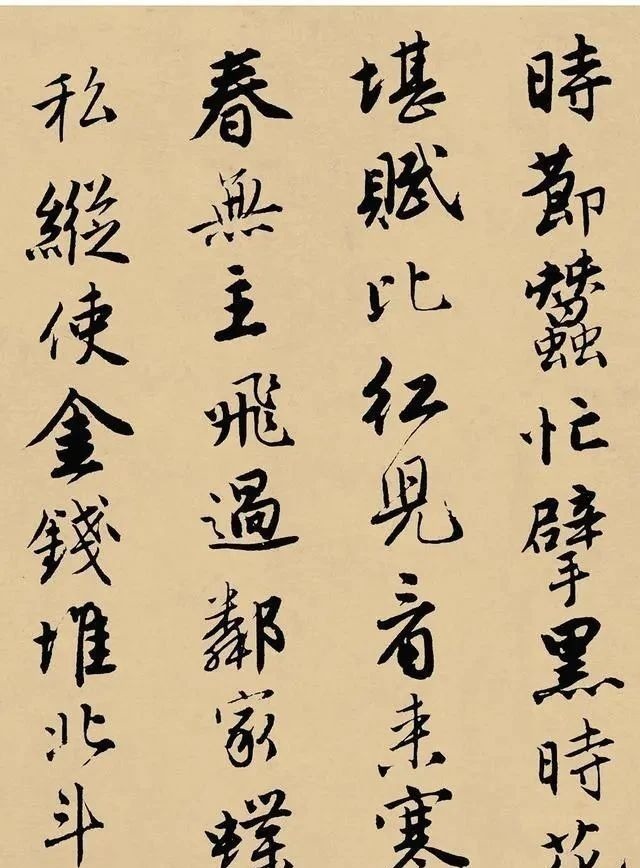 時節蠶忙擘黑時花
堪賦比紅兒看來寒
春無主飛過鄰家蝶
私縱使金錢堆北斗